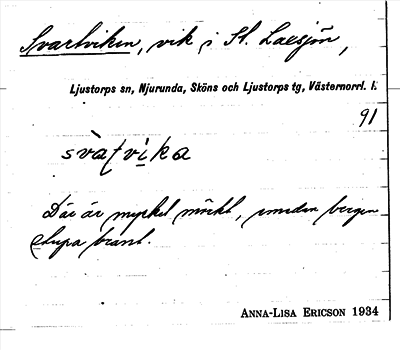 Svartviken, vik i St. Laxsjön,
Ljustorps sn, Njurunda, Sköns och Ljustorps tg, Västernorrl. l.
91
svatvika
Där är mycket mörkt, emedan bergen
stupa brant.
ANNA-LISA ERICSON 1934